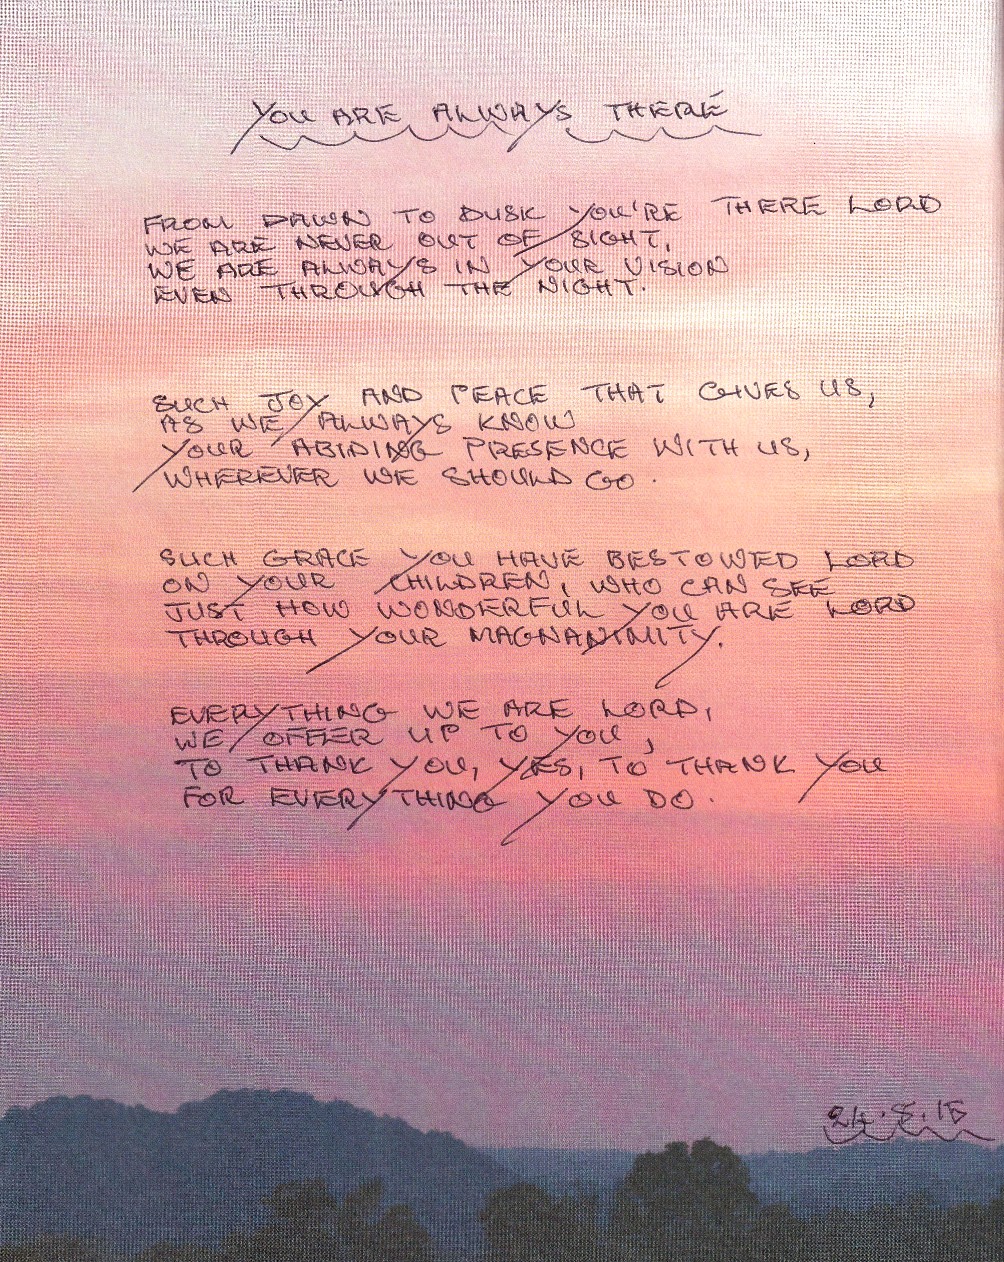 YOU ARE ALWAYS THERE
FROM DAWN TO DUSK YOU'RE THERE LORD
WE ARE NEVER OUT OF SIGHT,
WE ARE ALWAYS IN YOUR VISION
EVEN THROUGH THE NIGHT.
SUCH JOY AND PEACE THAT GIVES US,
AS WE ALWAYS KNOW
YOUR ABIDING PRESENCE WITH US,
WHEREVER WE SHOULD GO.
SUCH GRACE YOU HAVE BESTOWED LORD
ON YOUR CHILDREN, WHO CAN SEE
JUST HOW WONDERFUL YOU ARE LORD
THROUGH YOUR MAGNANIMITY.
EVERYTHING WE ARE LORD,
WE OFFER UP TO YOU,
TO THANK YOU, YES, TO THANK YOU
FOR EVERYTHING YOU DO.
24.8.15